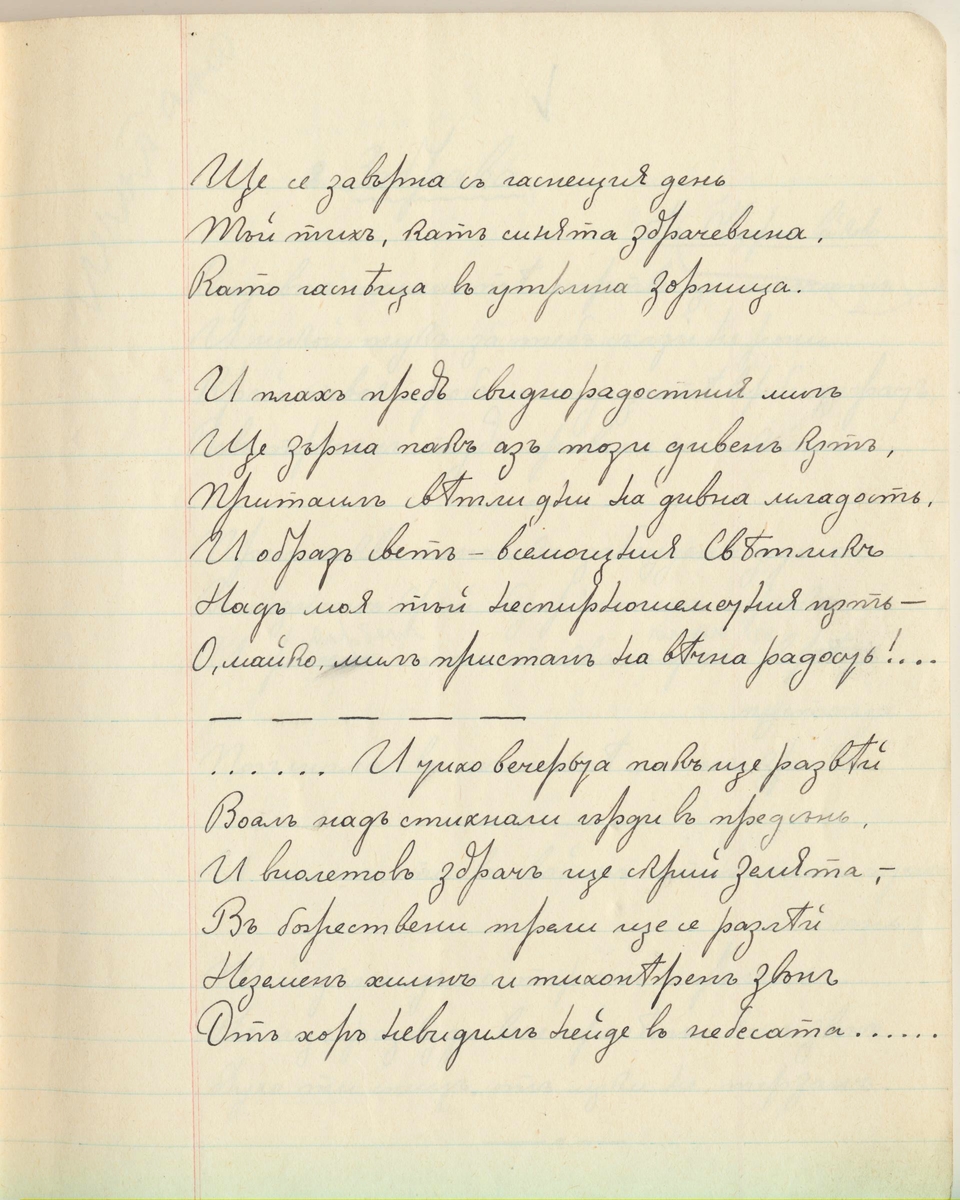 Ще се завърна съ гаснещия день
Тъй тихъ, катъ синята здрачевина,
Като гаснѣща въ утрина зорница.
И плахъ предъ свиднорадостния милъ
Ще зърна пакъ азъ този дивенъ кѫтъ,
Приталилъ свѣтли дни на дивна младость.
И образъ светъ – всемощния Свѣтликъ
Надъ моя тъй пѫть –
О, майко, милъ пристанъ на вѣчна радость!....
— — — — —
...... И тихо вечерьта пакъ ще развѣй
Воалъ надъ стихнали гърди въ предсънь,
И виолетовъ здрачъ ще скрий земята, –
Въ божествени трели ще се разлѣй
Неземенъ химнъ и звънъ
Отъ хоръ невидимъ нейде въ небесата......